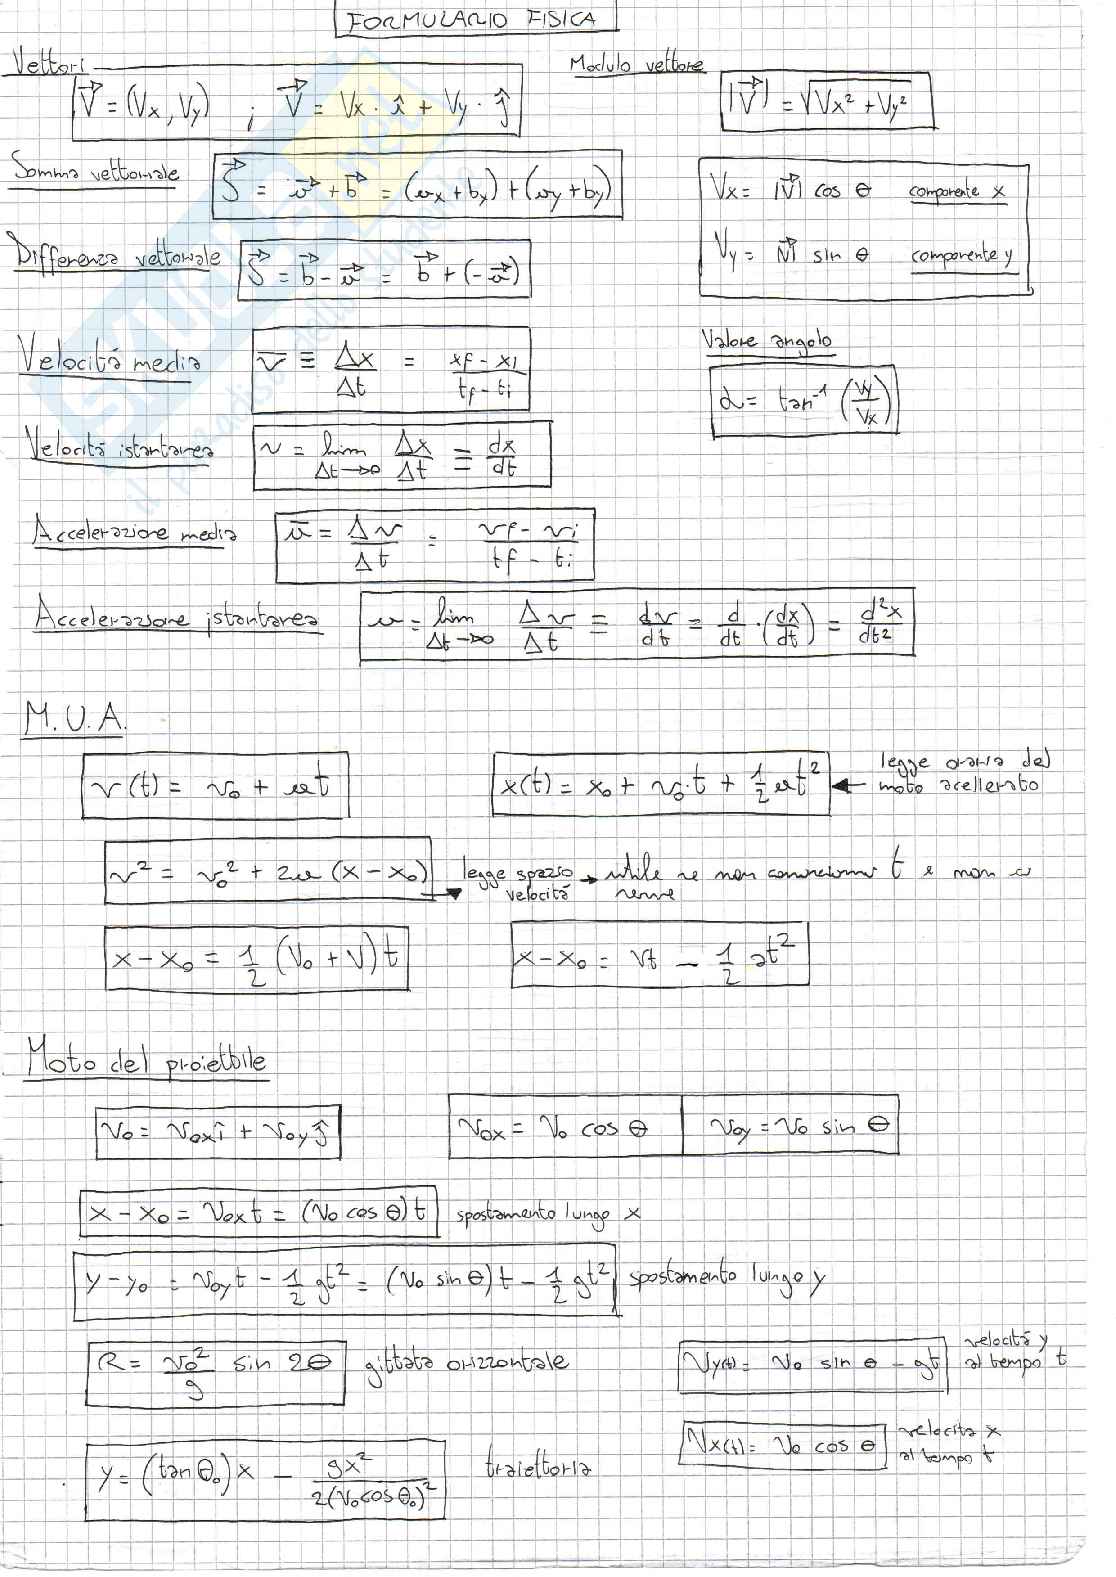 FORMULARIO FISICA
Vettori
V⃗ = (Vx, Vy) ; V⃗ = Vx · î + Vy · ĵ
Modulo vettore
|V⃗| = √(Vx² + Vy²)
Somma vettoriale
S⃗ = a⃗ + b⃗ = (ax + bx) + (ay + by)
Vx = |V⃗| cos θ componente x
Vy = |V⃗| sin θ componente y
Differenza vettoriale
S⃗ = b⃗ - a⃗ = b⃗ + (-a⃗)
Velocità media
v̄ ≡ Δx/Δt = (xf - xi)/(tf - ti)
Valore angolo
α = tan⁻¹ (Vy/Vx)
Velocità istantanea
v = lim Δt→∞ Δx/Δt ≡ dx/dt
Accelerazione media
ā = Δv/Δt = (vf - vi)/(tf - ti)
Accelerazione istantanea
a = lim Δt→∞ Δv/Δt ≡ dv/dt = d/dt · (dx/dt) = d²x/dt²
M.U.A.
v(t) = v₀ + at
x(t) = x₀ + v₀·t + 1/2 at² ← legge oraria del
moto acellerato
v² = v₀² + 2a (x - x₀) → legge spazio velocità → utile se non conosciamo t e non ci
serve
x - x₀ = 1/2 (V₀ + V) t
x - x₀ = Vt - 1/2 at²
Moto del proiettile
v₀ = v₀x î + v₀y ĵ
v₀x = v₀ cos θ
v₀y = v₀ sin θ
x - x₀ = v₀x t = (v₀ cos θ) t spostamento lungo x
y - y₀ = v₀y t - 1/2 gt² = (v₀ sin θ) t - 1/2 gt² spostamento lungo y
R = v₀²/g sin 2θ gittata orizzontale
Vy(t) = v₀ sin θ - gt velocità y
al tempo t
Vx(t) = v₀ cos θ velocita x
al tempo t
y = (tan θ₀) x - gx²/2(v₀ cos θ₀)² traiettoria